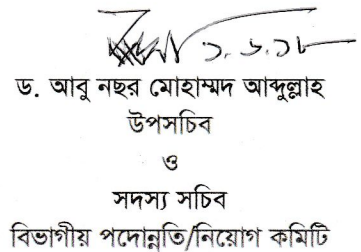 ১.৬.১৮
ড. আবু নছর মোহাম্মদ আব্দুল্লাহ
উপসচিব
ও
সদস্য সচিব
বিভাগীয় পদোন্নতি/নিয়োগ কমিটি